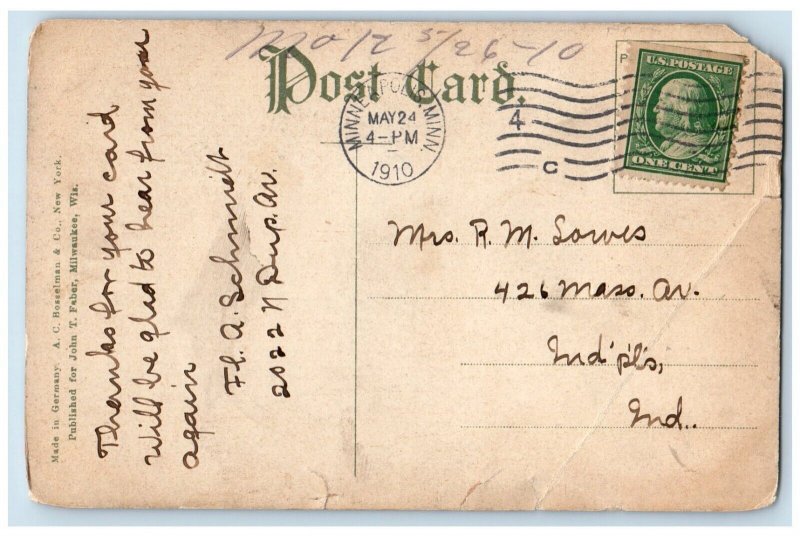 5/26-10
Post Card.
MINNEAPOLIS, MINN.
MAY 24
4-PM
1910
4
C
P
U.S. POSTAGE
ONE CENT
Made in Germany. A. C. Bosselman & Co., New York.
Published for John T. Faber, Milwaukee, Wis.
Thanks for your card
will be glad to hear from your
again
Fl. A. Schmidt
2022 N Dup. Av.
Mrs. R. M. Sowes
426 Mass. Av.
Ind'pl's,
Ind..